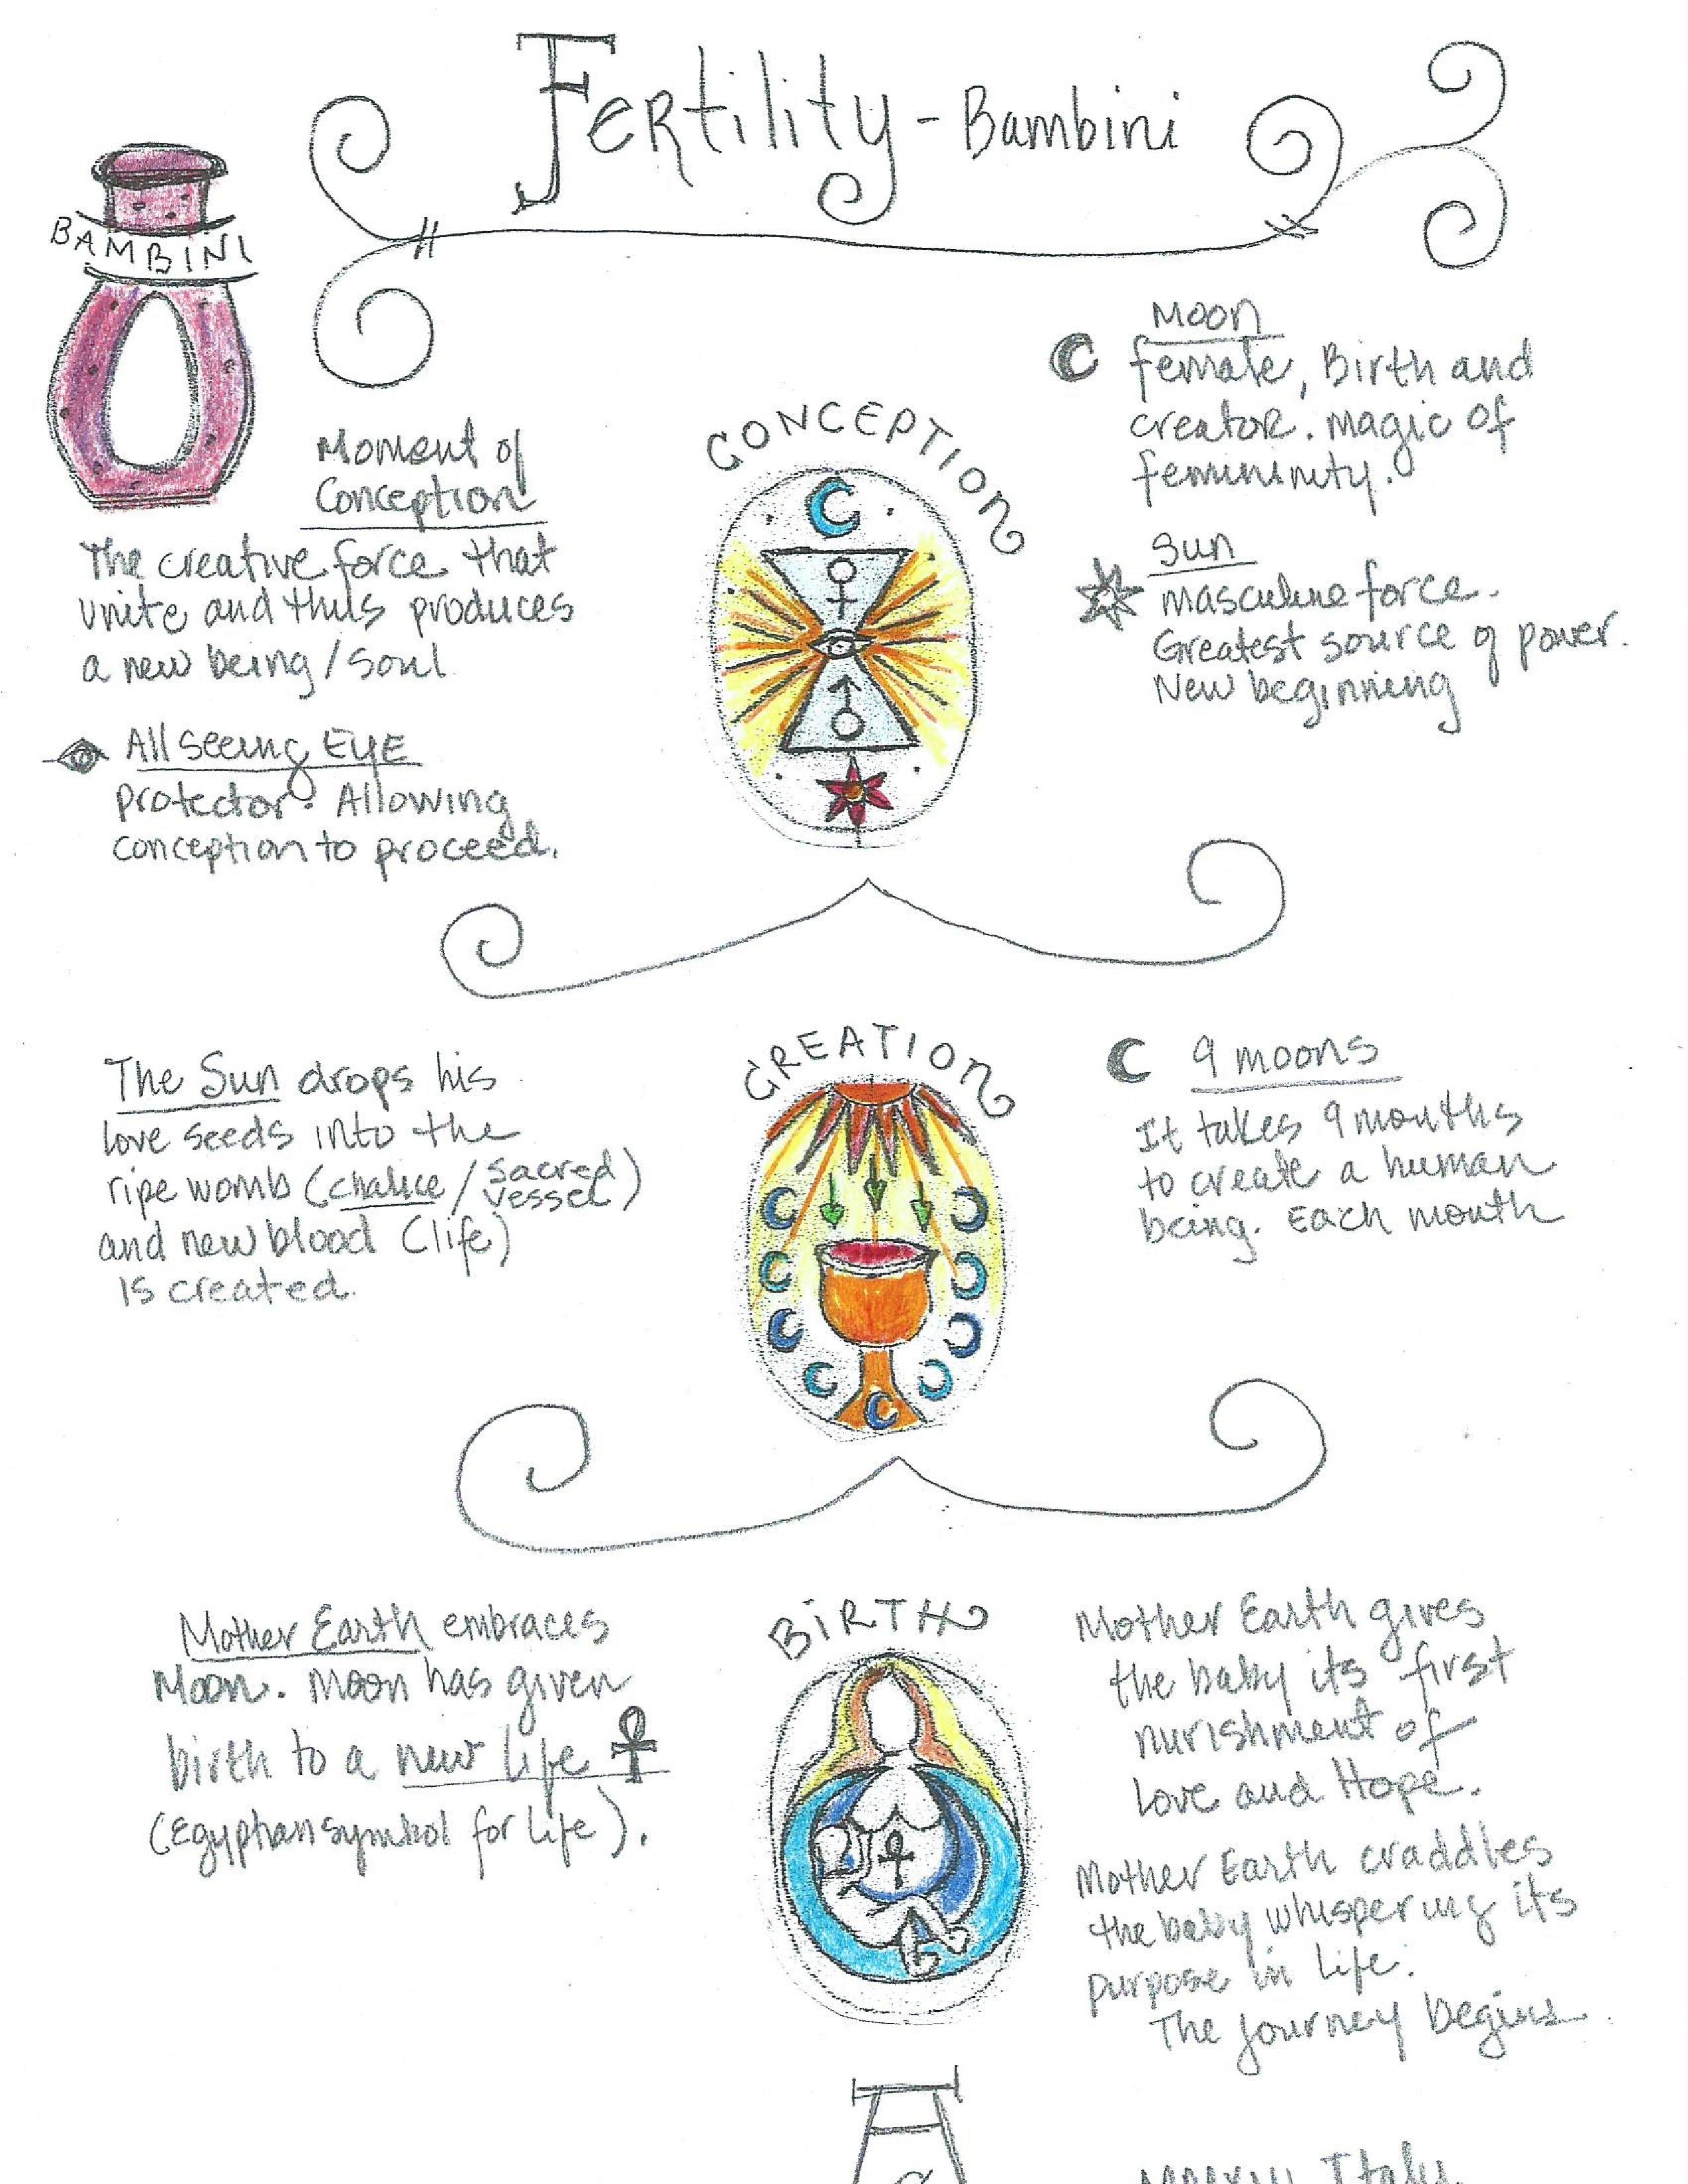 Fertility - Bambini
BAMBINI
Moment of
Conception
The creative force that
unite and thus produces
a new being/soul
All seeing EyE
protector. Allowing
conception to proceed.
CONCEPTION
Moon
female, Birth and
creator. Magic of
femininity.
Sun
masculine force.
Greatest source of power.
New beginning
The Sun drops his
love seeds into the
ripe womb (chalice / Sacred
vessel)
and new blood (life)
is created.
CREATION
9 moons
It takes 9 months
to create a human
being. Each month
Mother Earth embraces
Moon. Moon has given
birth to a new life
(Egyptian symbol for life).
BiRTH
Mother Earth gives
the baby its first
nurishment of
love and Hope.
Mother Earth craddles
the baby whispering its
purpose in life.
The journey begins
Italy